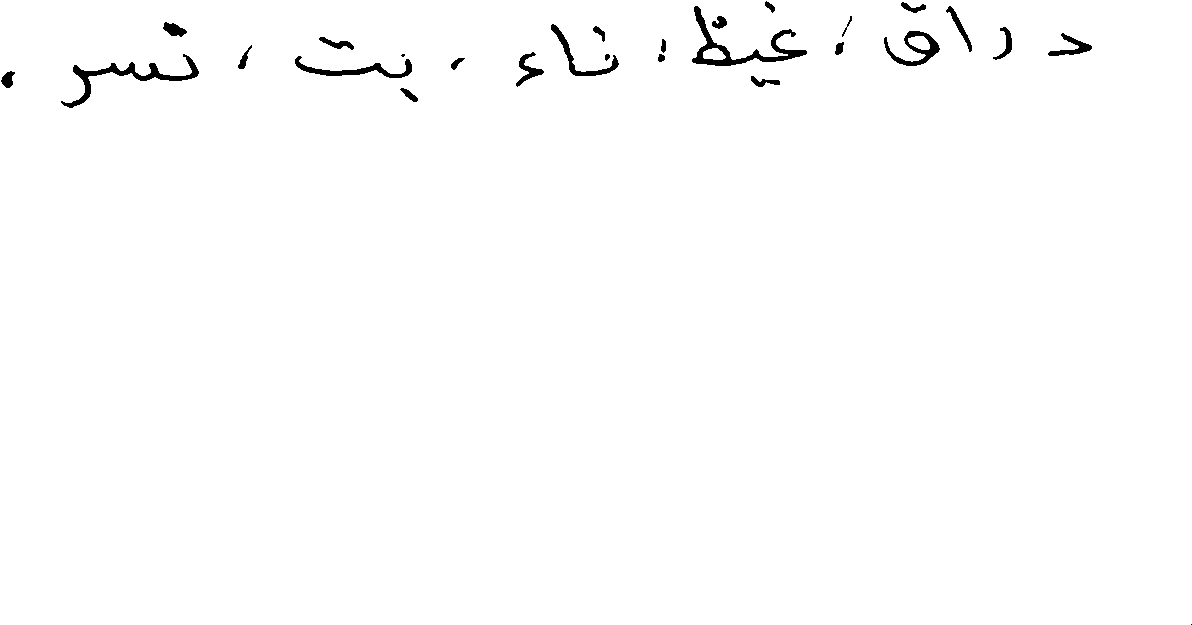 دراق، غيظ، ناء، بت، نسر.